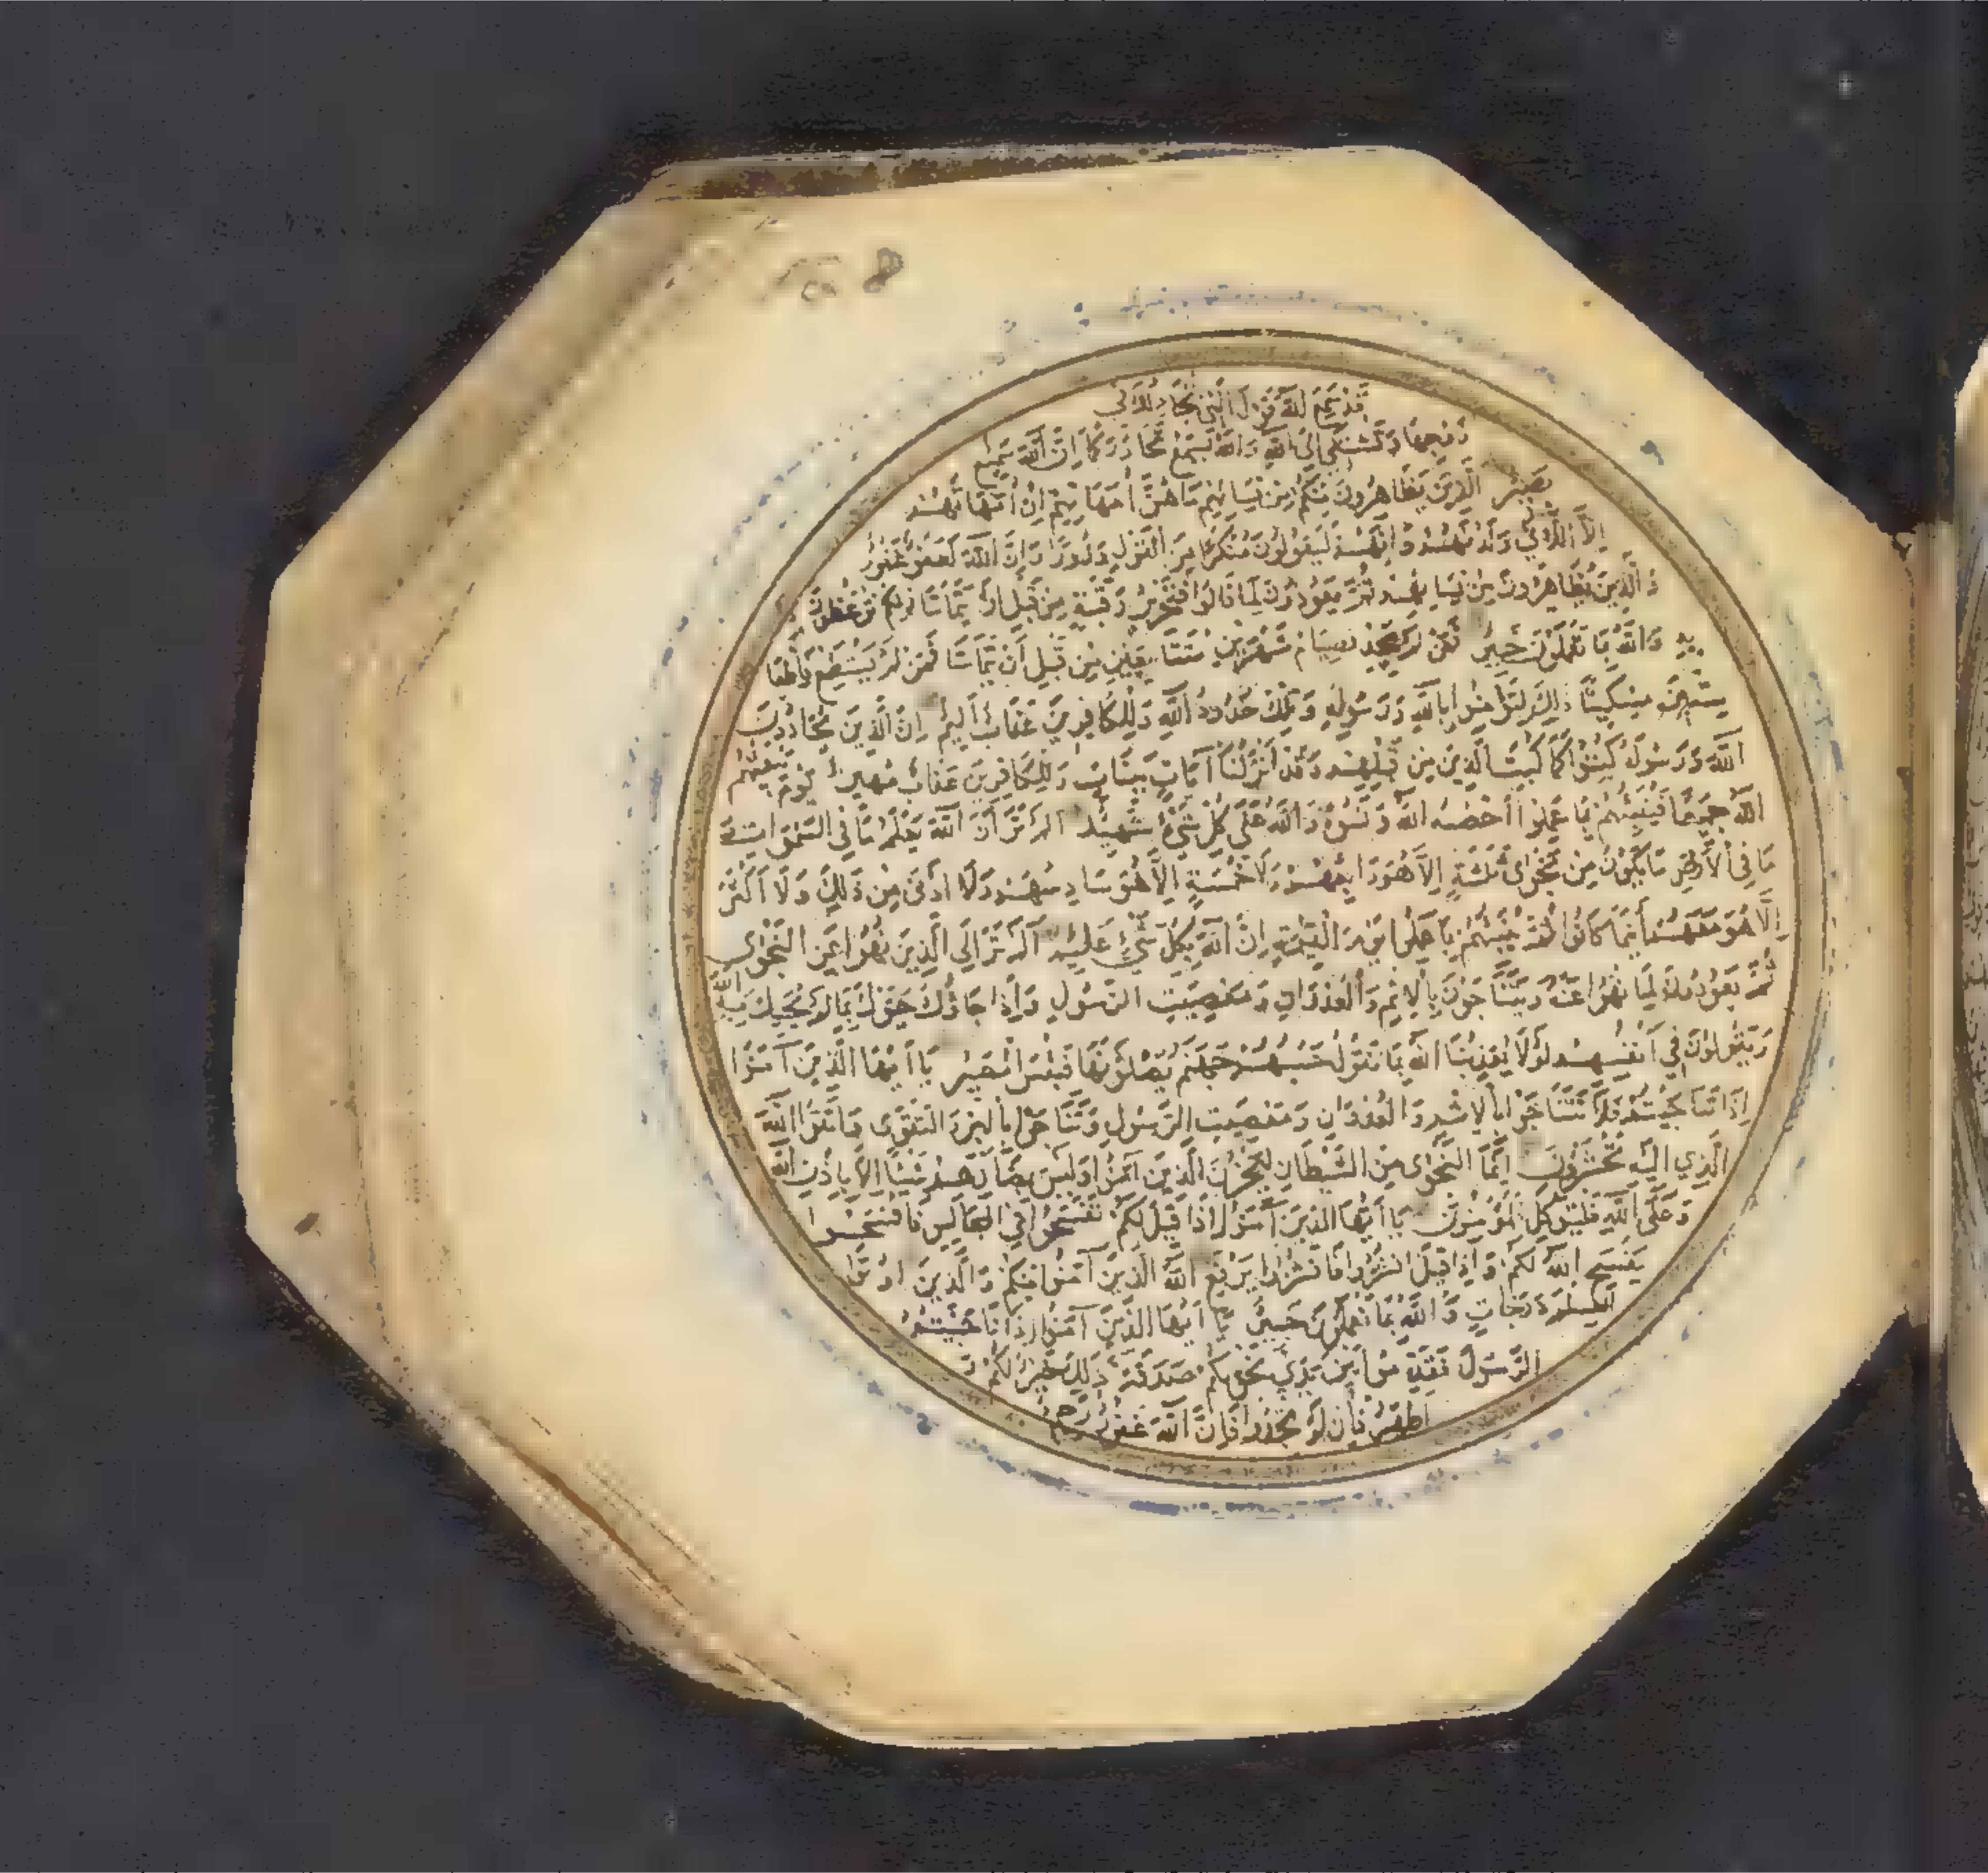 قَدْ سَمِعَ اللَّهُ قَوْلَ الَّتِي تُجَادِلُكَ فِي
زَوْجِهَا وَتَشْتَكِي إِلَى اللَّهِ وَاللَّهُ يَسْمَعُ تَحَاوُرَكُمَا إِنَّ اللَّهَ سَمِيعٌ
بَصِيرٌ الَّذِينَ يُظَاهِرُونَ مِنْكُمْ مِنْ نِسَائِهِمْ مَا هُنَّ أُمَّهَاتِهِمْ إِنْ أُمَّهَاتُهُمْ
إِلَّا اللَّائِي وَلَدْنَهُمْ وَإِنَّهُمْ لَيَقُولُونَ مُنْكَرًا مِنَ الْقَوْلِ وَزُورًا وَإِنَّ اللَّهَ لَعَفُوٌّ غَفُورٌ
وَالَّذِينَ يُظَاهِرُونَ مِنْ نِسَائِهِمْ ثُمَّ يَعُودُونَ لِمَا قَالُوا فَتَحْرِيرُ رَقَبَةٍ مِنْ قَبْلِ أَنْ يَتَمَاسَّا ذَلِكُمْ تُوعَظُونَ
بِهِ وَاللَّهُ بِمَا تَعْمَلُونَ خَبِيرٌ فَمَنْ لَمْ يَجِدْ فَصِيَامُ شَهْرَيْنِ مُتَتَابِعَيْنِ مِنْ قَبْلِ أَنْ يَتَمَاسَّا فَمَنْ لَمْ يَسْتَطِعْ فَإِطْعَامُ
سِتِّينَ مِسْكِينًا ذَلِكَ لِتُؤْمِنُوا بِاللَّهِ وَرَسُولِهِ وَتِلْكَ حُدُودُ اللَّهِ وَلِلْكَافِرِينَ عَذَابٌ أَلِيمٌ إِنَّ الَّذِينَ يُحَادُّونَ
اللَّهَ وَرَسُولَهُ كُبِتُوا كَمَا كُبِتَ الَّذِينَ مِنْ قَبْلِهِمْ وَقَدْ أَنْزَلْنَا آيَاتٍ بَيِّنَاتٍ وَلِلْكَافِرِينَ عَذَابٌ مُهِينٌ يَوْمَ يَبْعَثُهُمُ
اللَّهُ جَمِيعًا فَيُنَبِّئُهُمْ بِمَا عَمِلُوا أَحْصَاهُ اللَّهُ وَنَسُوهُ وَاللَّهُ عَلَى كُلِّ شَيْءٍ شَهِيدٌ أَلَمْ تَرَ أَنَّ اللَّهَ يَعْلَمُ مَا فِي السَّمَوَاتِ وَ
مَا فِي الْأَرْضِ مَا يَكُونُ مِنْ نَجْوَى ثَلَثَةٍ إِلَّا هُوَ رَابِعُهُمْ وَلَا خَمْسَةٍ إِلَّا هُوَ سَادِسُهُمْ وَلَا أَدْنَى مِنْ ذَلِكَ وَلَا أَكْثَرَ
إِلَّا هُوَ مَعَهُمْ أَيْنَمَا كَانُوا ثُمَّ يُنَبِّئُهُمْ بِمَا عَمِلُوا يَوْمَ الْقِيمَةِ إِنَّ اللَّهَ بِكُلِّ شَيْءٍ عَلِيمٌ أَلَمْ تَرَ إِلَى الَّذِينَ نُهُوا عَنِ النَّجْوَى
ثُمَّ يَعُودُونَ لِمَا نُهُوا عَنْهُ وَيَتَنَاجَوْنَ بِالْإِثْمِ وَالْعُدْوَانِ وَمَعْصِيَتِ الرَّسُولِ وَإِذَا جَاؤُكَ حَيَّوْكَ بِمَا لَمْ يُحَيِّكَ بِهِ اللَّهُ
وَيَقُولُونَ فِي أَنْفُسِهِمْ لَوْلَا يُعَذِّبُنَا اللَّهُ بِمَا نَقُولُ حَسْبُهُمْ جَهَنَّمُ يَصْلَوْنَهَا فَبِئْسَ الْمَصِيرُ يَا أَيُّهَا الَّذِينَ آمَنُوا
إِذَا تَنَاجَيْتُمْ فَلَا تَتَنَاجَوْا بِالْإِثْمِ وَالْعُدْوَانِ وَمَعْصِيَتِ الرَّسُولِ وَتَنَاجَوْا بِالْبِرِّ وَالتَّقْوَى وَاتَّقُوا اللَّهَ
الَّذِي إِلَيْهِ تُحْشَرُونَ إِنَّمَا النَّجْوَى مِنَ الشَّيْطَانِ لِيَحْزُنَ الَّذِينَ آمَنُوا وَلَيْسَ بِضَارِّهِمْ شَيْئًا إِلَّا بِإِذْنِ اللَّهِ
وَعَلَى اللَّهِ فَلْيَتَوَكَّلِ الْمُؤْمِنُونَ يَا أَيُّهَا الَّذِينَ آمَنُوا إِذَا قِيلَ لَكُمْ تَفَسَّحُوا فِي الْمَجَالِسِ فَافْسَحُوا
يَفْسَحِ اللَّهُ لَكُمْ وَإِذَا قِيلَ انْشُزُوا فَانْشُزُوا يَرْفَعِ اللَّهُ الَّذِينَ آمَنُوا مِنْكُمْ وَالَّذِينَ أُوتُوا
الْعِلْمَ دَرَجَاتٍ وَاللَّهُ بِمَا تَعْمَلُونَ خَبِيرٌ يَا أَيُّهَا الَّذِينَ آمَنُوا إِذَا نَاجَيْتُمُ
الرَّسُولَ فَقَدِّمُوا بَيْنَ يَدَيْ نَجْوَيكُمْ صَدَقَةً ذَلِكَ خَيْرٌ لَكُمْ وَ
أَطْهَرُ فَإِنْ لَمْ تَجِدُوا فَإِنَّ اللَّهَ غَفُورٌ رَحِيمٌ